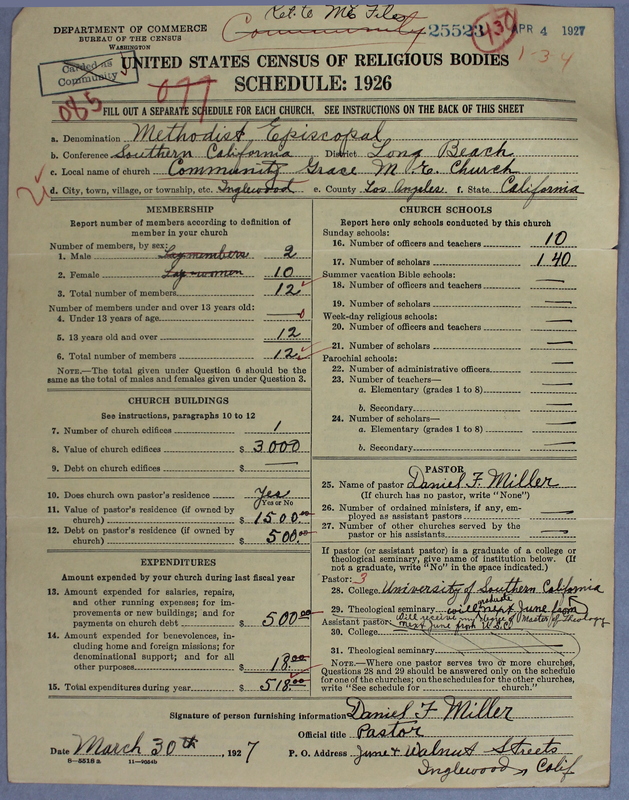 Ret. to ME Files
DEPARTMENT OF COMMERCE
BUREAU OF THE CENSUS
WASHINGTON
Community 25523 430 APR 4 1927
1-3-4
Carded as
Community
UNITED STATES CENSUS OF RELIGIOUS BODIES
SCHEDULE: 1926
077
085
FILL OUT A SEPARATE SCHEDULE FOR EACH CHURCH. SEE INSTRUCTIONS ON THE BACK OF THIS SHEET
a. Denomination Methodist Episcopal
b. Conference Southern California District Long Beach
c. Local name of church Community Grace M. E. Church
d. City, town, village, or township, etc. Inglewood e. County Los Angeles f. State California
MEMBERSHIP
Report number of members according to definition of
member in your church
Number of members, by sex:
1. Male Lay members 2
2. Female Lay women 10
3. Total number of members 12
Number of members under and over 13 years old:
4. Under 13 years of age
5. 13 years old and over 12
6. Total number of members 12
NOTE.—The total given under Question 6 should be the
same as the total of males and females given under Question 3.
CHURCH BUILDINGS
See instructions, paragraphs 10 to 12
7. Number of church edifices 1
8. Value of church edifices $ 3000
9. Debt on church edifices $ —
10. Does church own pastor's residence Yes
Yes or No
11. Value of pastor's residence (if owned by
church) $ 1500.00
12. Debt on pastor's residence (if owned by
church) $ 500.00
EXPENDITURES
Amount expended by your church during last fiscal year
13. Amount expended for salaries, repairs,
and other running expenses; for im-
provements or new buildings; and for
payments on church debt $ 500.00
14. Amount expended for benevolences, in-
cluding home and foreign missions; for
denominational support; and for all
other purposes $ 18.00
15. Total expenditures during year $ 518.00
CHURCH SCHOOLS
Report here only schools conducted by this church
Sunday schools:
16. Number of officers and teachers 10
17. Number of scholars 140
Summer vacation Bible schools:
18. Number of officers and teachers —
19. Number of scholars —
Week-day religious schools:
20. Number of officers and teachers —
21. Number of scholars —
Parochial schools:
22. Number of administrative officers —
23. Number of teachers—
a. Elementary (grades 1 to 8) —
b. Secondary —
24. Number of scholars—
a. Elementary (grades 1 to 8) —
b. Secondary —
PASTOR
25. Name of pastor Daniel F. Miller
(If church has no pastor, write "None")
26. Number of ordained ministers, if any, em-
ployed as assistant pastors —
27. Number of other churches served by the
pastor or his assistants —
If pastor (or assistant pastor) is a graduate of a college or
theological seminary, give name of institution below. (If
not a graduate, write "No" in the space indicated.)
Pastor: 3
28. College University of Southern California
graduate
29. Theological seminary will next June from
Assistant pastor: Will receive my degree of Master of Theology
next June from U.S.C.
30. College
31. Theological seminary
NOTE.—Where one pastor serves two or more churches,
Questions 28 and 29 should be answered only on the schedule
for one of the churches; on the schedules for the other churches,
write "See schedule for church."
Signature of person furnishing information Daniel F. Miller
Official title Pastor
Date March 30th, 1927 P. O. Address June & Walnut Streets
8—5518 a 11—9084b
Inglewood, Calif